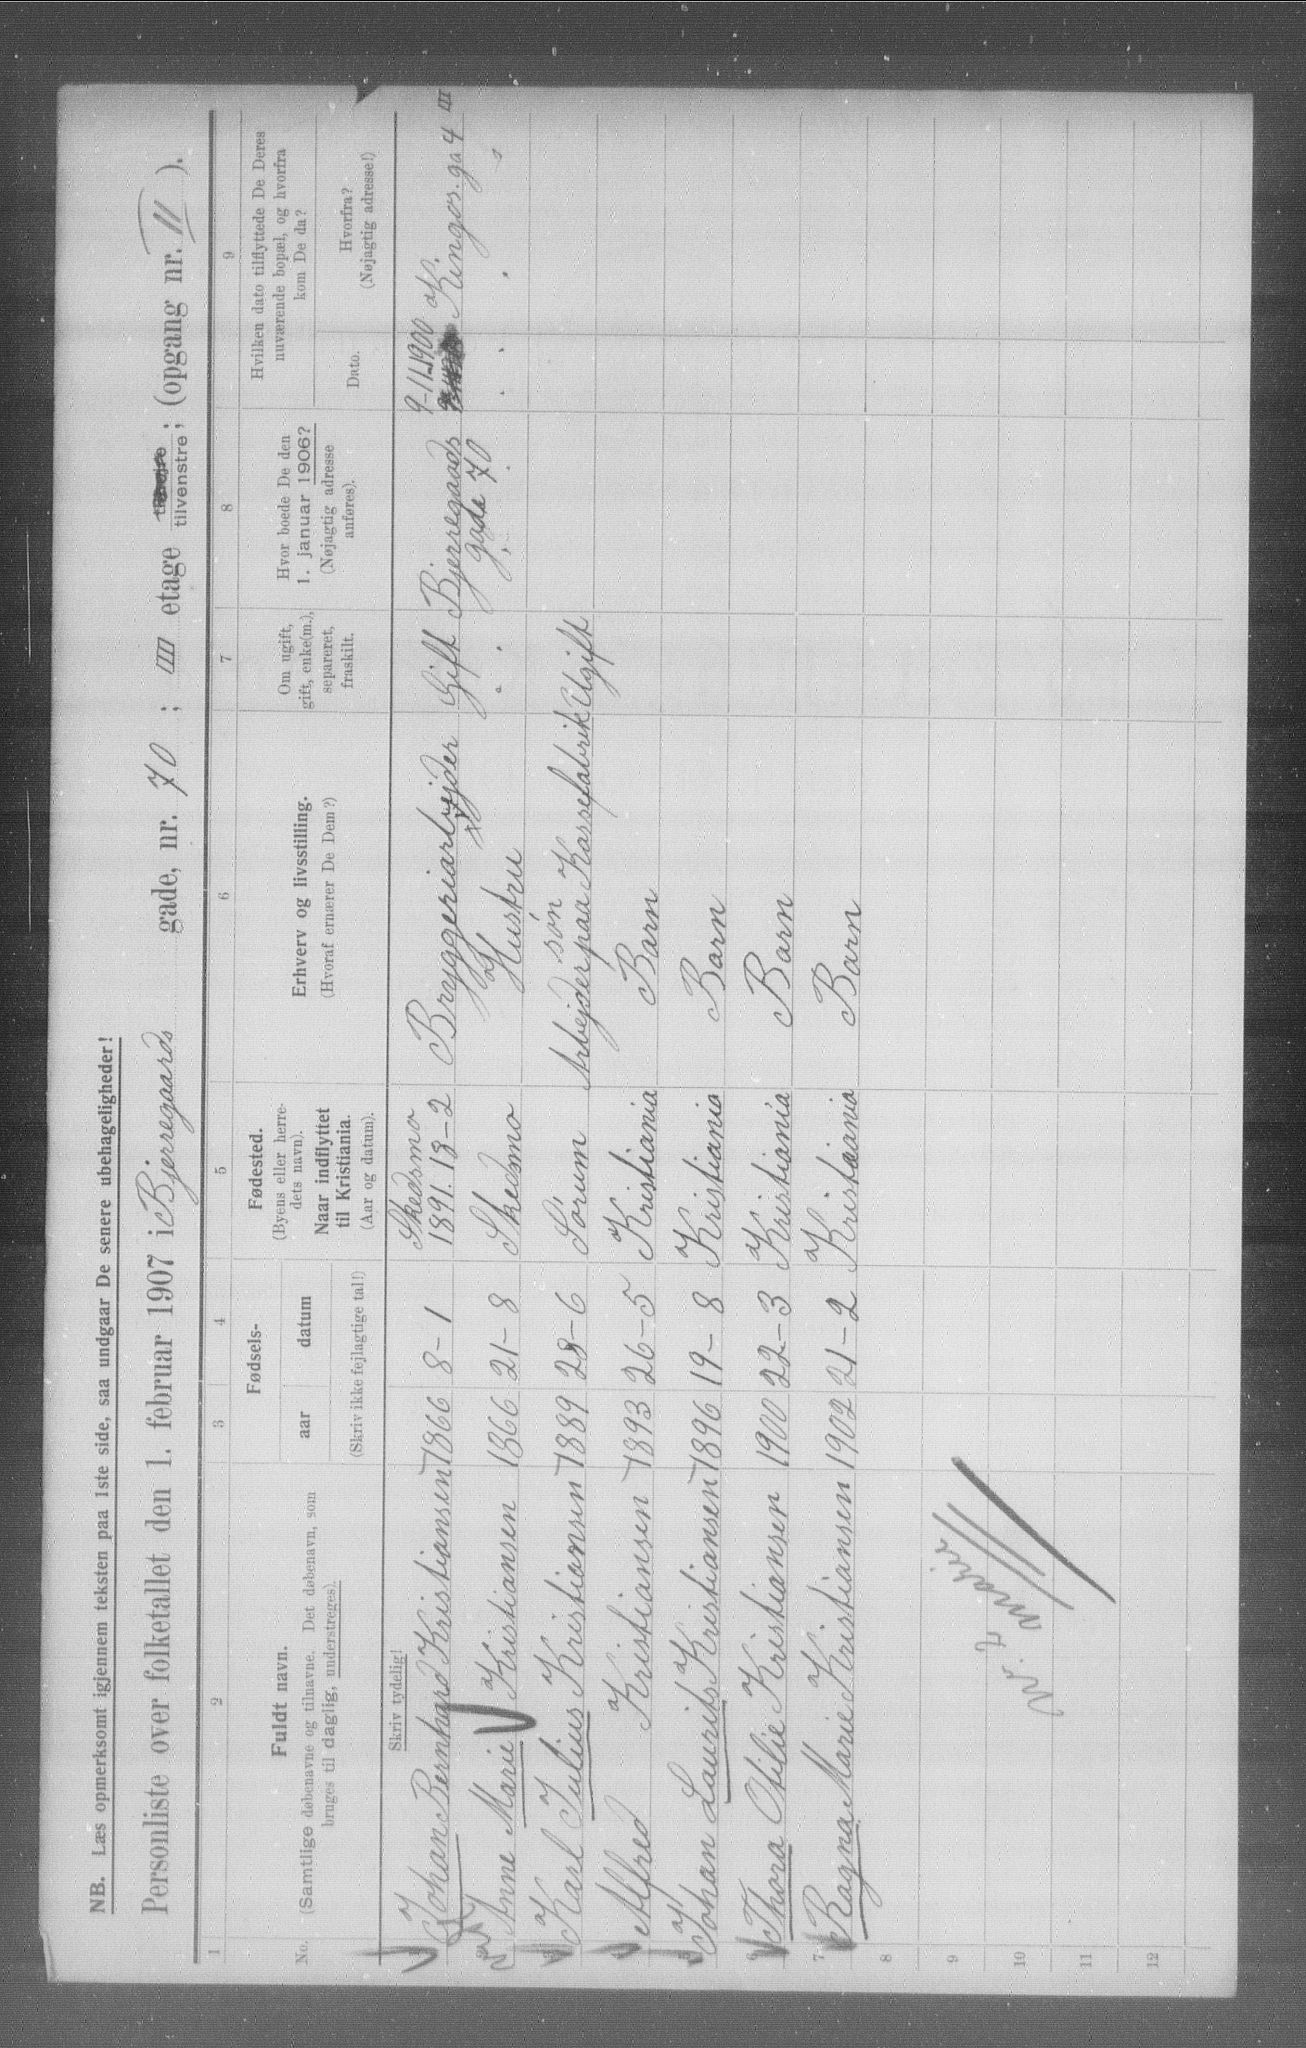 NB. Læs opmerksomt igjennem teksten paa 1ste side, saa undgaar De senere ubehageligheder!
Personliste over folketallet den 1. februar 1907 i Bjerregaards gade, nr. 70 ; III etage tilvenstre ; (opgang nr. II ).
1 2 3 4 5 6 7 8 9
No.
Fuldt navn.
(Samtlige døbenavne og tilnavne. Det døbenavn, som
bruges til daglig, understreges).
Fødsels-
aar datum
(Skriv ikke fejlagtige tal!)
Fødested.
(Byens eller herre-
dets navn).
Naar indflyttet
til Kristiania.
(Aar og datum).
Erhverv og livsstilling.
(Hvoraf ernærer De Dem?)
Om ugift,
gift, enke(m.),
separeret,
fraskilt.
Hvor boede De den
1. januar 1906?
(Nøjagtig adresse
anføres).
Hvilken dato tilflyttede De Deres
nuværende bopæl, og hvorfra
kom De da?
Dato.
Hvorfra?
(Nøjagtig adresse!)
Skriv tydelig!
Johan Bernhard Kristiansen 1866 8-1 Skedsmo 1891. 13-2 Bryggeriarbejder Gift Bjerregaards gade 70 9-11-1900 Kingos. ga 4 III
Anne Marie Kristiansen 1866 21-8 Skedsmo Hustru
Karl Julius Kristiansen 1889 28-6 Sørum søn Arbejder paa Kassefabrik Ugift
Alfred Kristiansen 1893 26-5 Kristiania Barn
Johan Laurits Kristiansen 1896 19-8 Kristiania Barn
6 Thora Otilie Kristiansen 1900 22-3 Kristiania Barn
7 Ragna Marie Kristiansen 1902 21-2 Kristiania Barn
8
9
10
11
12